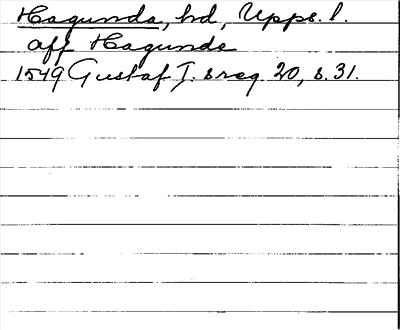 Hagunda, hd, Upps. l.
aff Hagunde
1549 Gustaf I. s reg. 20, s. 31.